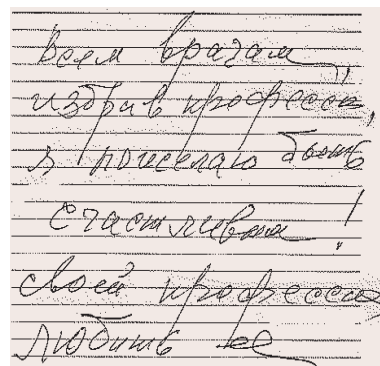 Всем врачам,
избрав професси,
я пожелаю быть
счастливым!
своей професси
любить ее